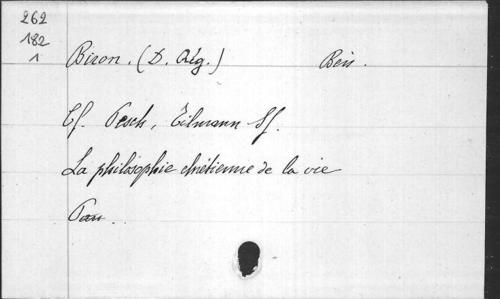 262
182
1
Biron, (D. Rég.) Ben.
Cf. Pesch, Tilmann Sf.
La philosophie chrétienne de la vie
Pau